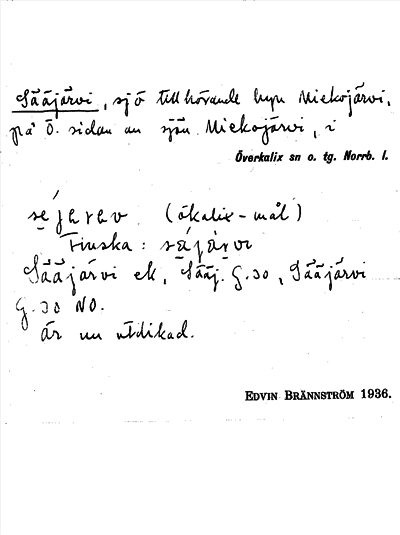 Sääjärvi, sjö tillhörande byn Miekojärvi,
på Ö. sidan av sjön Miekojärvi, i
Överkalix sn o. tg. Norrb. l.
sé̱jarav (ökalix-mål)
Finska: sä́järvi
Sääjärvi ek, Sääj. G.30, Sääjärvi
G.30 NO.
Är nu utdikad.
EDVIN BRÄNNSTRÖM 1936.